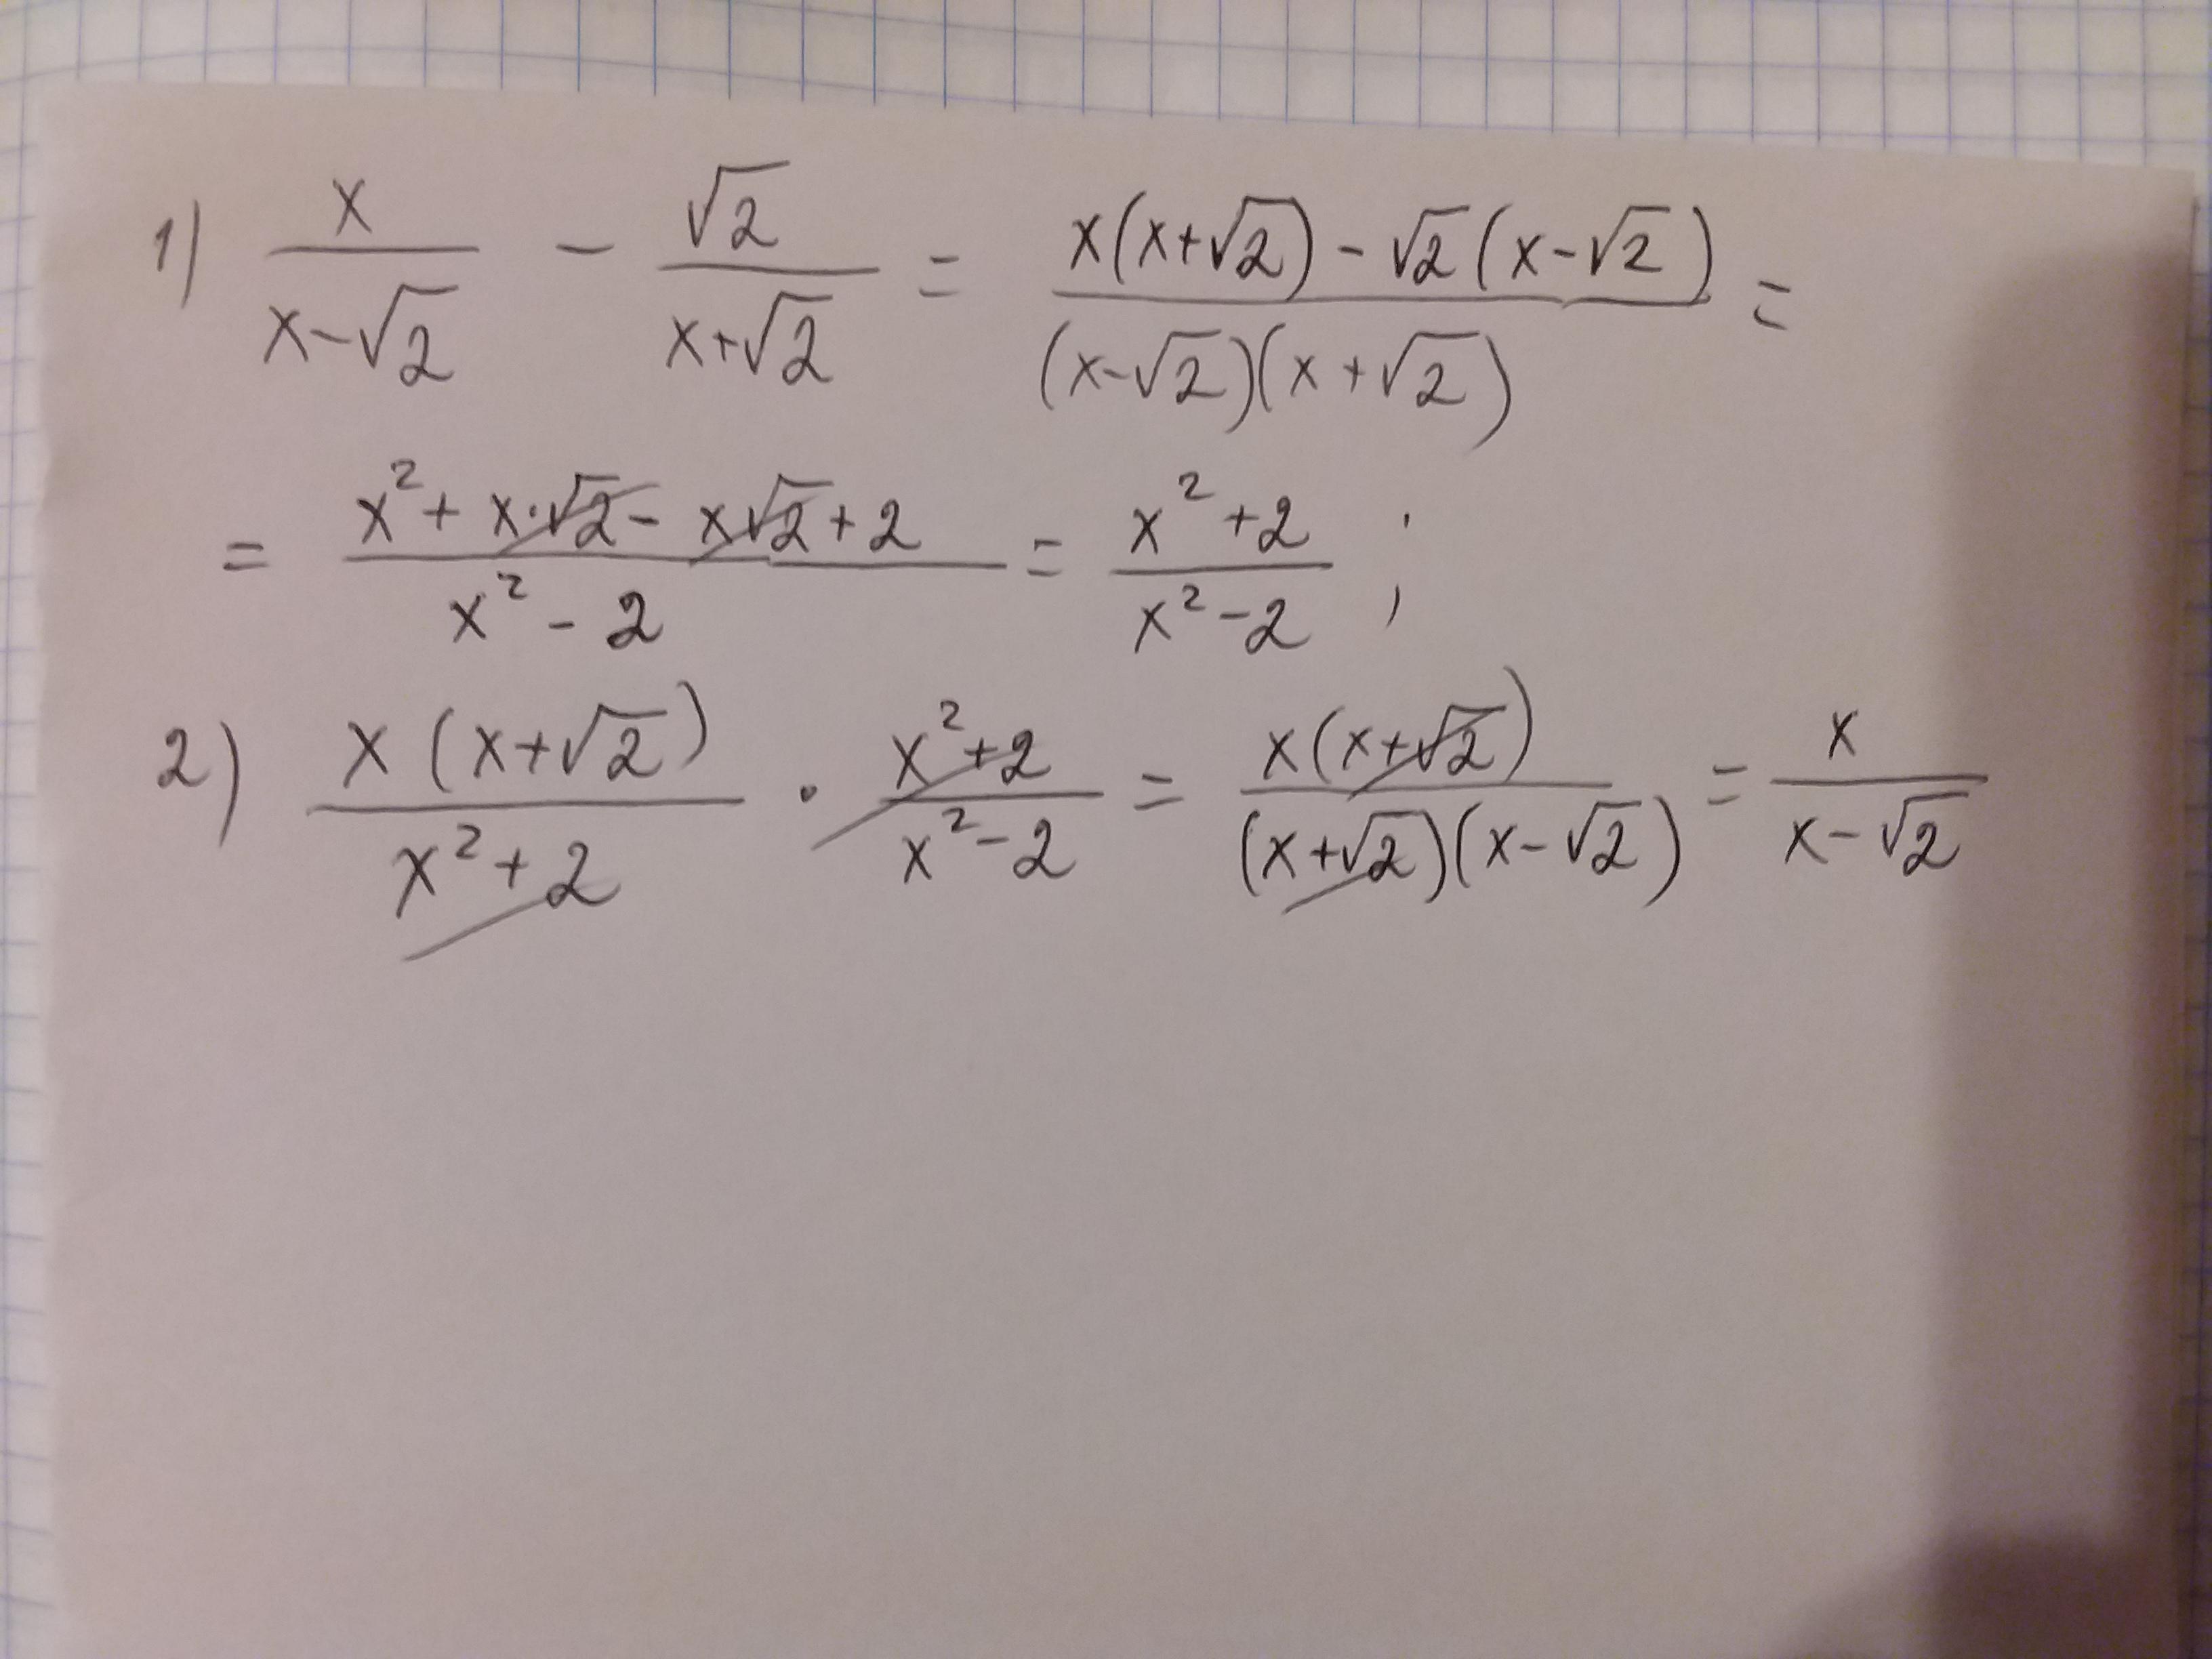 1) x/(x-√2) - √2/(x+√2) = (x(x+√2)-√2(x-√2))/((x-√2)(x+√2)) =
= (x²+x·√2-x√2+2)/(x²-2) = (x²+2)/(x²-2) ;
2) (x(x+√2))/(x²+2) · (x²+2)/(x²-2) = (x(x+√2))/((x+√2)(x-√2)) = x/(x-√2)